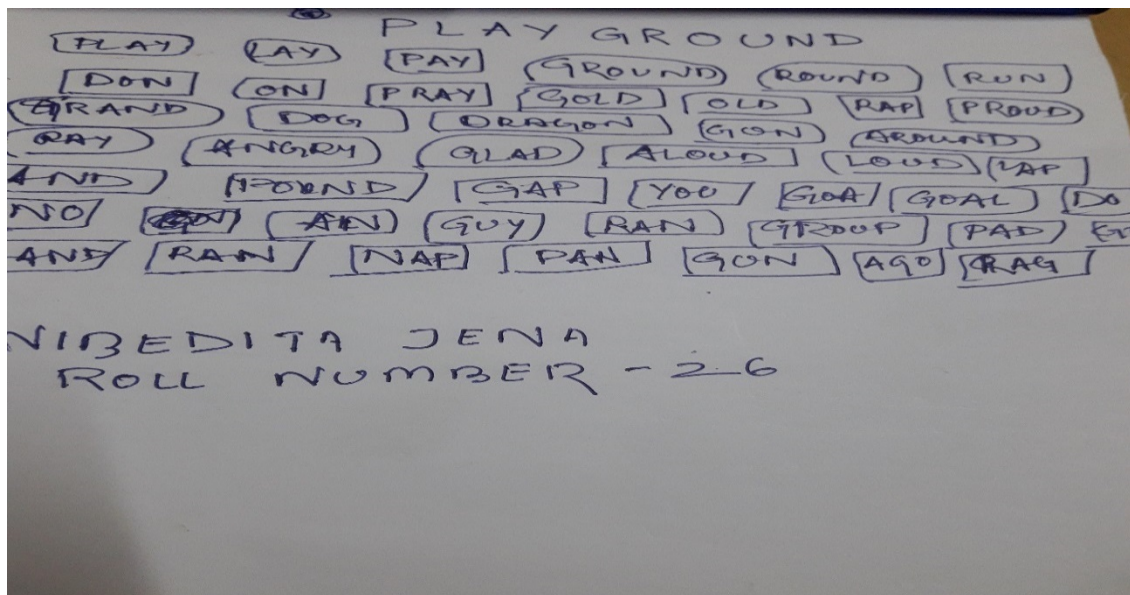 PLAY GROUND
PLAY LAY PAY GROUND ROUND RUN
DON ON PRAY GOLD OLD RAP PROUD
GRAND DOG DRAGON GON AROUND
RAY ANGRY GLAD ALOUD LOUD LAP
AND POUND GAP YOU GOA GOAL DO
NO AN GUY RAN GROUP PAD
AND RAN NAP PAN GUN AGO RAG
NIBEDITA JENA
ROLL NUMBER - 26